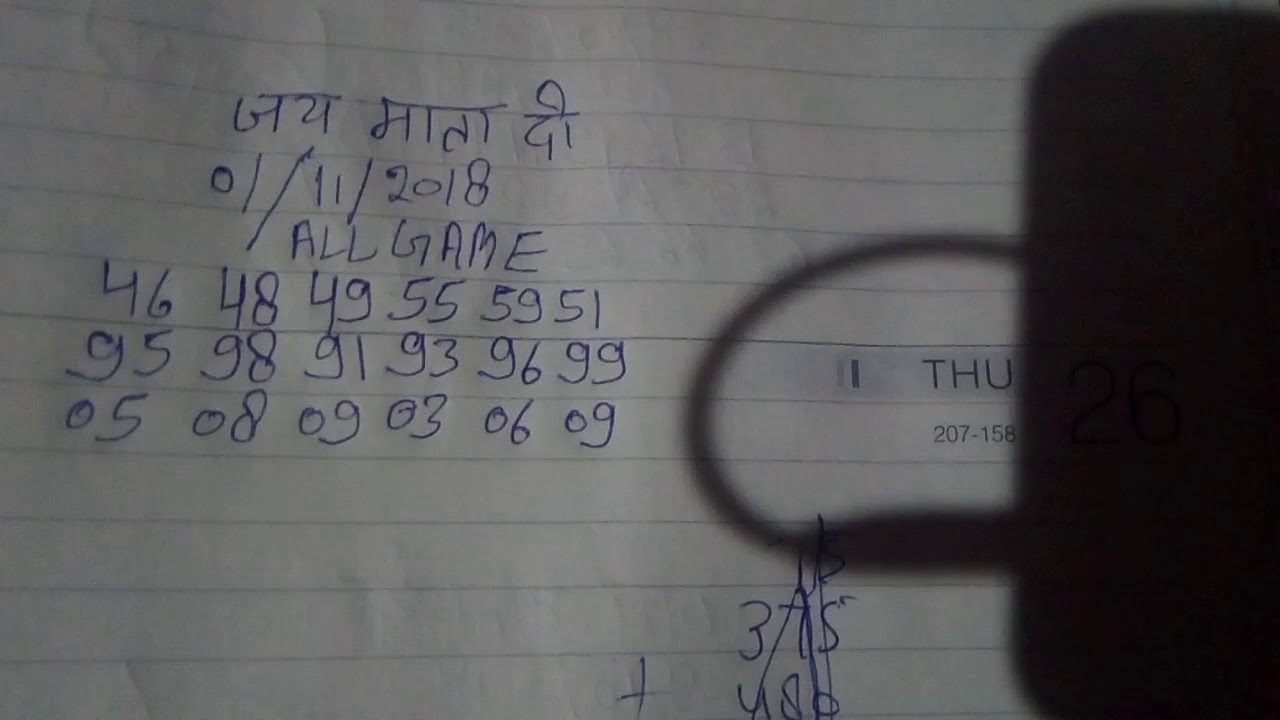 जय माता दी
01/11/2018
ALL GAME
46 48 49 55 59 51
95 98 91 93 96 99
05 08 09 03 06 09
THU 26
207-158